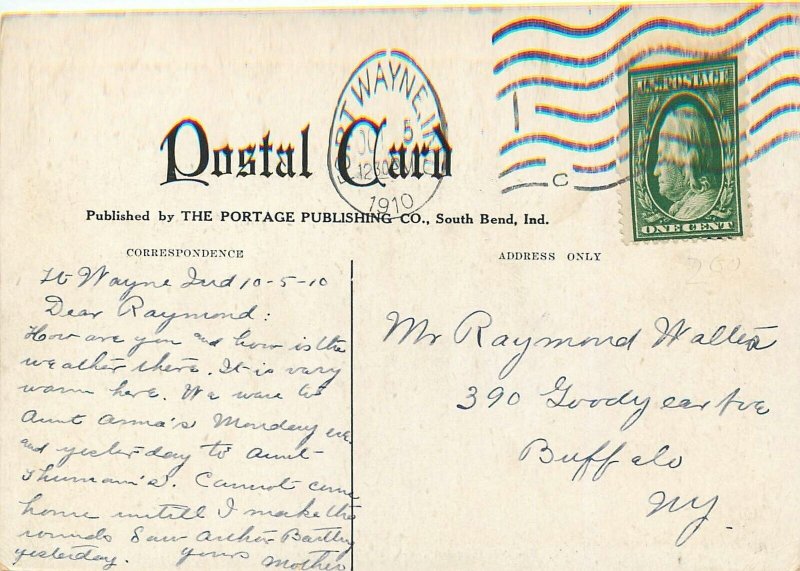 FORT WAYNE, IN
OCT 5
12 30 PM
1910
C
U.S. POSTAGE
ONE CENT
Postal Card
Published by THE PORTAGE PUBLISHING CO., South Bend, Ind.
CORRESPONDENCE
ADDRESS ONLY
Ft Wayne Ind 10-5-10
Dear Raymond:
How are you and how is the
weather there. It is very
warm here. We were to
Aunt Anna's Monday eve
and yesterday to Aunt
Thumam's. Cannot come
home untill I make the
rounds Saw Arthur Bartley
yesterday. yours Mother
Mr Raymond Walter
390 Goodyear Ave
Buffalo
NY.